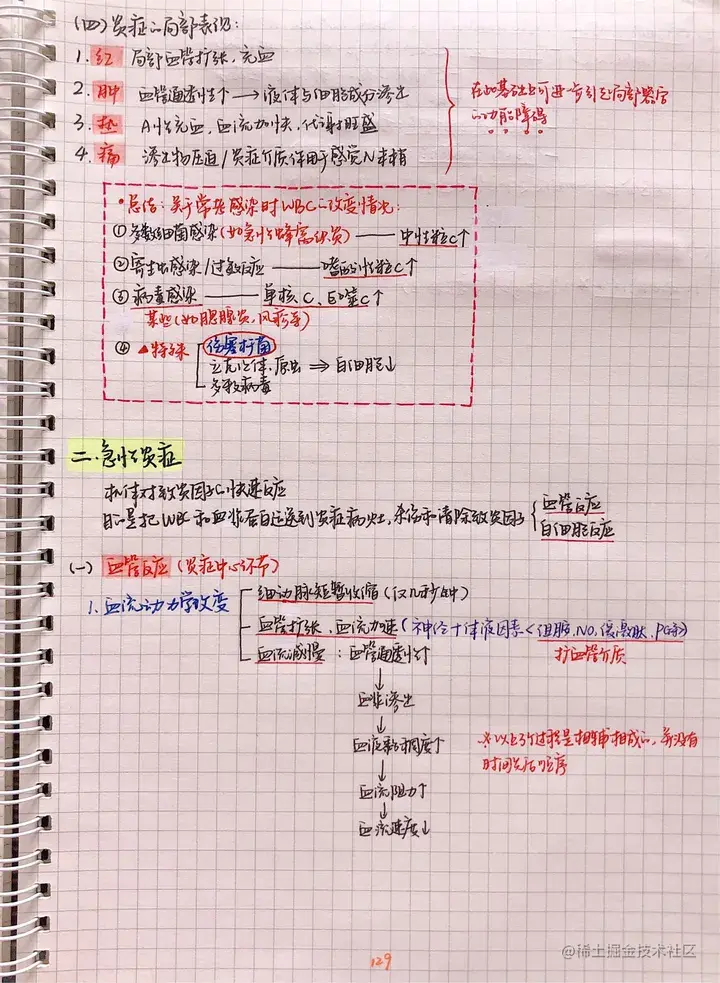 (四) 炎症的局部表现:
1. 红 局部血管扩张,充血
2. 肿 血管通透性↑→液体与细胞成分渗出
3. 热 A性充血,血流加快,代谢旺盛
4. 痛 渗出物压迫/炎症介质作用于感觉N末梢
在此基础上可进一步引起局部器官
的功能障碍
•总结:关于常见感染时WBC的改变情况:
①多数细菌感染(如急性蜂窝织炎)——中性粒C↑
②寄生虫感染/过敏反应——嗜酸性粒C↑
③病毒感染——单核C、巨噬C↑
某些(如腮腺炎,风疹等)
④▲特殊 伤寒杆菌
立克次体、原虫⇒白细胞↓
多数病毒
二.急性炎症
机体对致炎因子的快速反应
目的是把WBC和血浆蛋白运送到炎症病灶,杀伤和清除致炎因子
血管反应
白细胞反应
(一) 血管反应(炎症中心环节)
1. 血流动力学改变
细动脉短暂收缩(仅几秒钟)
血管扩张、血流加速(神经+体液因素<组胺,NO,缓激肽,PG等)
扩血管介质
血流减慢:血管通透性↑
↓
血浆渗出
↓
血液黏稠度↑
↓
血流阻力↑
↓
血流速度↓
※以上3个过程是相辅相成的,并没有
时间先后顺序
129
@稀土掘金技术社区